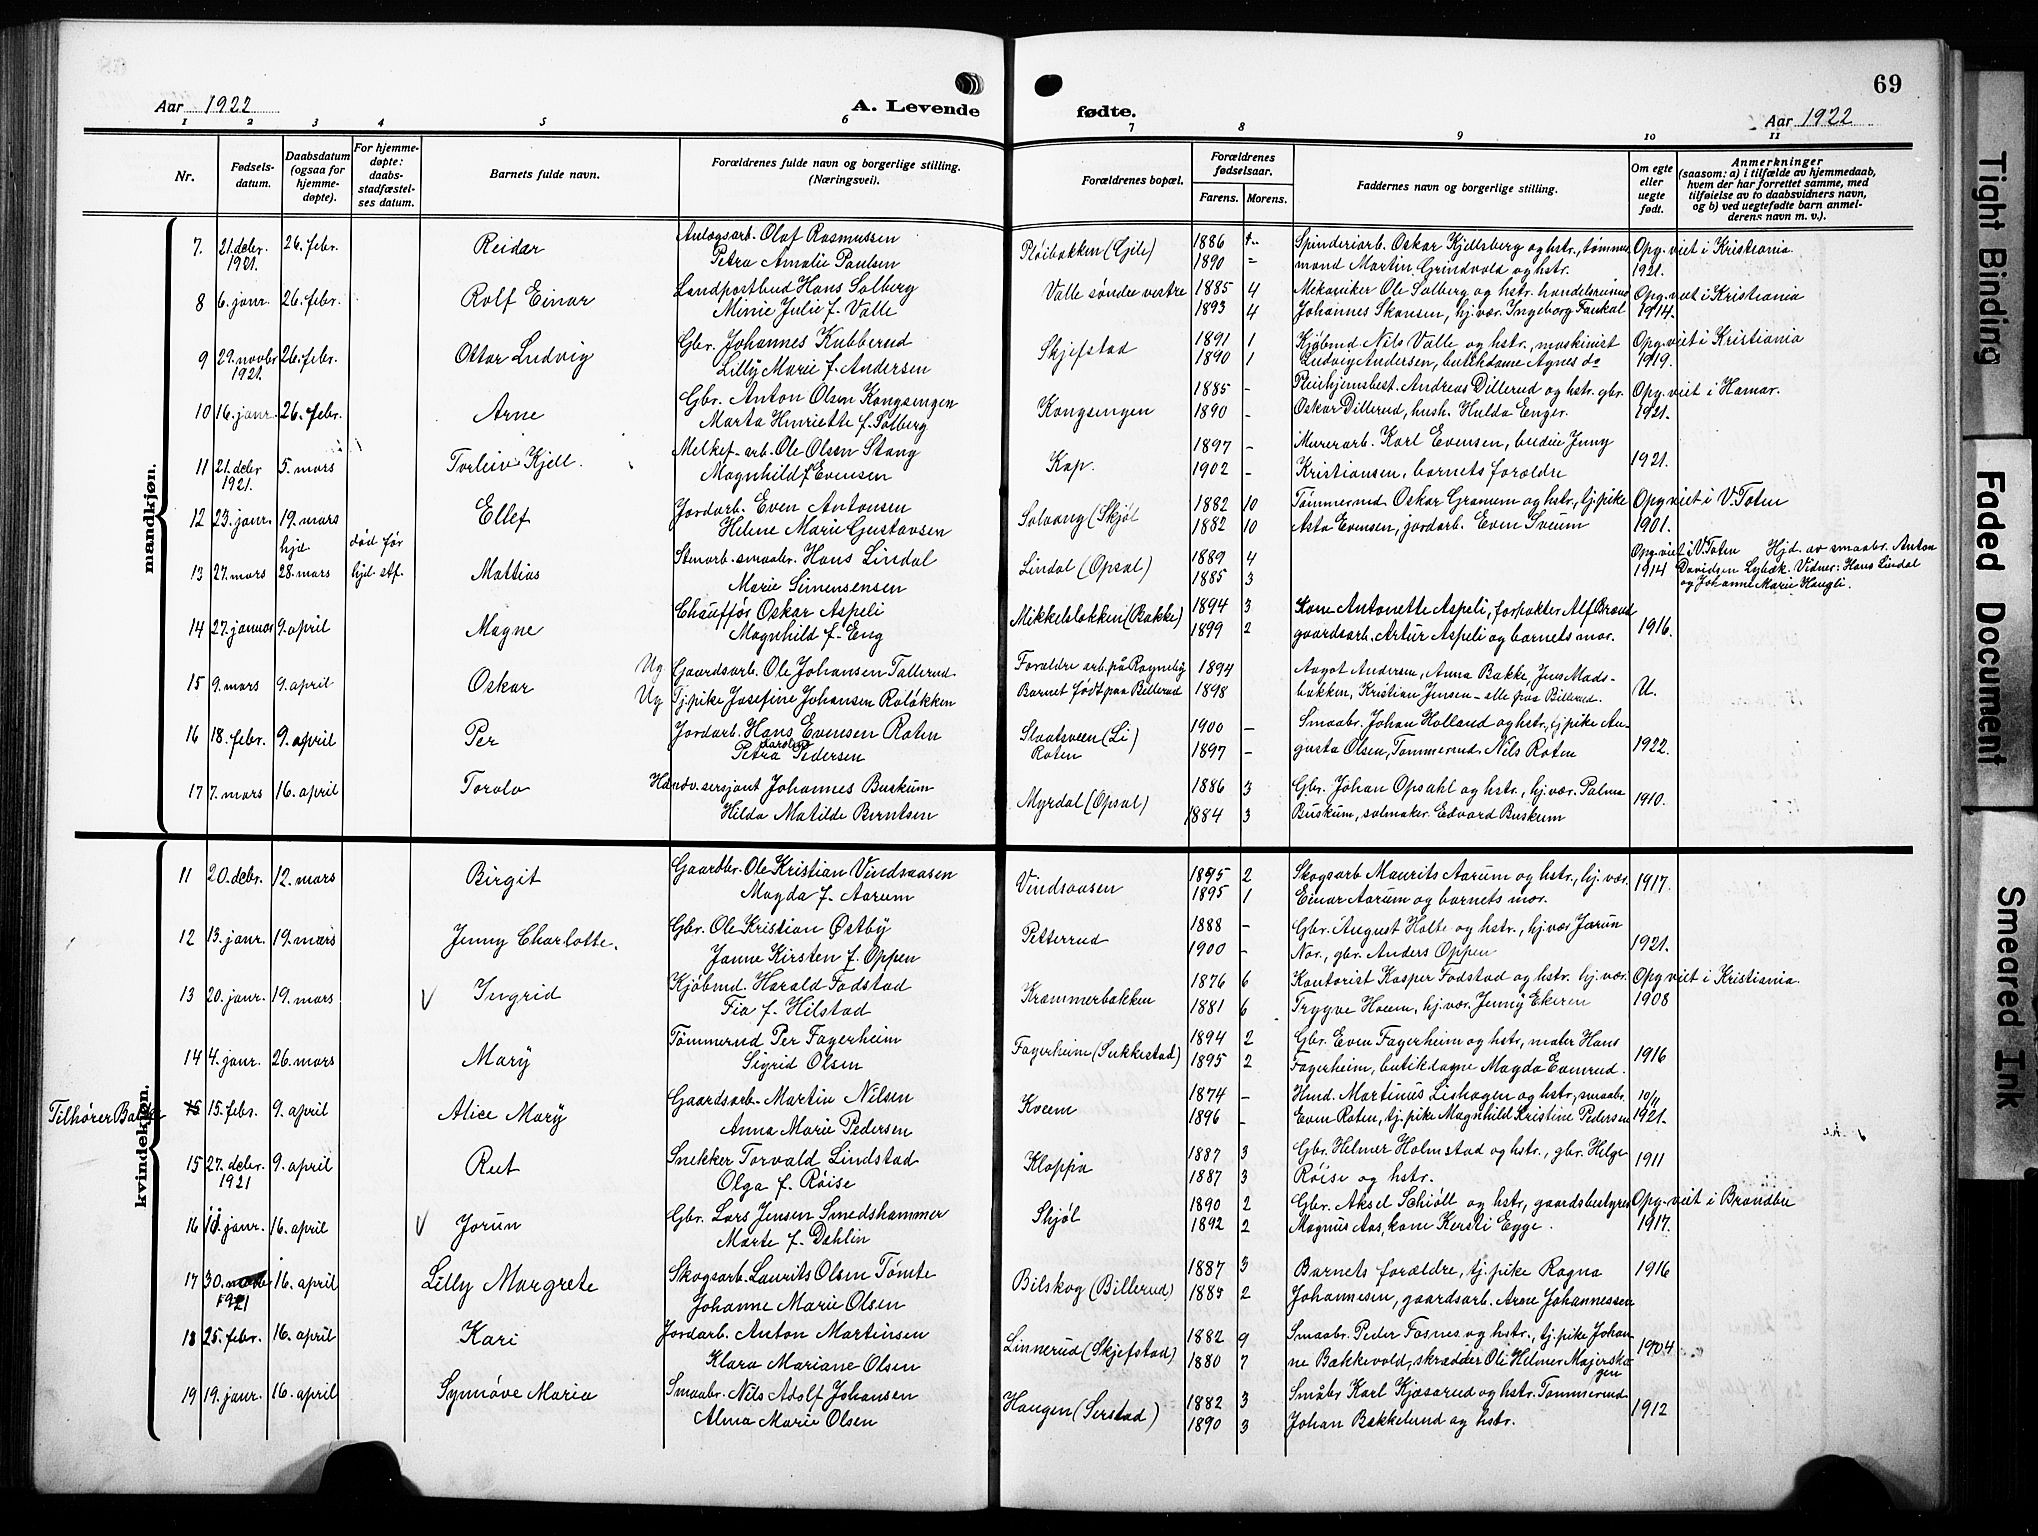 69
Aar 1922
A. Levende
fødte.
Aar 1922
1 2 3 4 5 6 7 8 9 10 11
Nr.
Fødsels-
datum.
Daabsdatum
(ogsaa for
hjemme-
døpte).
For hjemme-
døpte:
daabs-
stadfæstel-
ses datum.
Barnets fulde navn.
Forældrenes fulde navn og borgerlige stilling.
(Næringsvei).
Forældrenes bopæl.
Forældrenes
fødselsaar.
Farens. Morens.
Faddernes navn og borgerlige stilling.
Om egte
eller
uegte
født.
Anmerkninger
(saasom: a) i tilfælde av hjemmedaab,
hvem der har forrettet samme, med
tilføielse av to daabsvidners navn,
og b) ved uegtefødte barn anmel-
derens navn m. v.).
mandkjøn.
7. 21. debr. 1921. 26. febr. Reidar Anlægsarb. Olaf Rasmussen Pløibakken (Gjile) 1886 Spinderiarb. Oskar Kjellsberg og hstr., tømmer Opg. viet i Kristiania
Petra Amalie Paulsen 1890 mand Martin Grindvold og hstr. 1921.
8 6. janr. 26. febr. Rolf Einar Landpostbud Hans Solberg Valle søndre vestre 1885 4 Mekaniker Ole Solberg og hstr. Opg. viet i Kristiania
Minie Julie f. Valle 1893 4 Johannes Skansen, hj. vær. Ingeborg Faukal 1914.
9 29. novbr 1921. 26. febr. Ottar Ludvig Gbr. Johannes Kubberud Skjefstad 1891 1 Kjøbmd Nils Valle og hstr., maskinist Opg. viet i Kristiania
Lilly Marie f. Andersen 1890 1 Ludvig Andersen, butikdame Agnes do 1919.
10 16. janr. 26. febr. Arne Gbr. Anton Olsen Kongsengen Kongsengen 1885 – Pleiehjemsbest. Andreas Dillerud og hstr. gbr. Opg. viet i Hamar.
Marta Henriette f. Solberg 1890 – Oskar Dillerud, hush. Hulda Enger. 1921.
11 21. debr 1921. 5. mars Torleiv Kjell. Melkef.-arb. Ole Olsen Stang Kap. 1897 – Murerarb. Karl Evensen, budeie Jenny 1921.
Magnhild f. Evensen 1902 – Kristiansen, barnets forældre
12 23. janr. 19. mars Ellef Jordarb. Even Antonsen Solvang (Skjøl 1882 10 Tømmermd Oskar Granum og hstr., tj. pike Opg viet i V. Toten
Helene Marie Gustavsen 1882 10 Asta Evensen, jordarb. Even Sveum 1901.
13 27. mars hjd. 28. mars død før hjd. stf. Mattias Stenarb. smaabr. Hans Lindal Lindal (Opsal) 1889 4 Opg. viet i V. Toten Hjd. av smaabr. Anton
Marie Simensensen 1885 3 1914 Davidsen Lybæk. Vidner: Hans Lindal
og Johanne Marie Haugli.
14 27. januar 9. april Magne Chauffør Oskar Aspeli Mikkelsløkken (Bakke) 1894 3 Kone Antonette Aspeli, forpakter Alf Brand 1916.
Magnhild f. Eng 1899 2 gaardsarb. Artur Aspeli og barnets mor.
15 9. mars 9. april Oskar Ug Gaardsarb. Ole Johansen Tallerud Forældre arb. på Rogneby 1894 Aagot Andersen, Anna Bakke, Jens Mads- U.
Ug Tj. pike Josefine Johansen Roløkken Barnet født paa Billerud 1898 bakken, Kristian Jensen – alle paa Billerud.
16 18. febr. 9. april Per Jordarb. Hans Evensen Roten Slaatsveen (Li) 1900 – Smaabr. Johan Holland og hstr., tj. pike Au- 1922.
Petra Karoline Pedersen Roten 1897 – gusta Olsen, Tømmermd. Nils Roten
17 7. mars 16. april Torolv Handv. sersjant Johannes Buskum Myrdal (Opsal) 1886 3 Gbr. Johan Opsahl og hstr., hj. vær. Palma 1910.
Hilda Matilde Berntsen 1884 3 Buskum, salmaker Edvard Buskum
kvindekjøn.
11 20. debr. 12. mars Birgit Gaardbr. Ole Kristian Vindsaasen Vindsaasen 1895 2 Skogsarb Maurits Aarum og hstr., hj. vær. 1917.
Magda f. Aarum 1895 1 Einar Aarum og barnets mor.
12 13. janr. 19. mars Jenny Charlotte. Gbr. Ole Kristian Østby Petterrud 1888 – Gbr. August Holte og hstr., hj. vær Jørun 1921.
Janna Kirsten f. Oppen 1900 – Nor., gbr. Anders Oppen
13 20. janr. 19. mars V Ingrid Kjøbmd. Harald Fodstad Krammerbakken 1876 6 Kontorist Kasper Fodstad og hstr. hj. vær. Opg viet i Kristiania.
Fia f. Hilstad 1881 6 Trygve Hoem, hj. vær. Jenny Ekeren 1908
14 4. janr. 26. mars Mary Tømmermd Per Fagerheim Fagerheim (Sukkestad) 1894 2 Gbr. Even Fagerheim og hstr., maler Hans 1916
Sigrid Olsen 1895 2 Fagerheim, butikdame Magda Evenrud.
Tilhører Balke 15 15. febr. 9. april Alice Mary Gaardsarb. Martin Nilsen Kveem 1874 – Hmd. Martinus Lishagen og hstr., smaabr. 10/11
Anna Marie Pedersen 1896 – Even Roten, tj. pike Magnhild Kristine Pedersen 1921.
15 27. debr. 1921 9. april Rut Snekker Torvald Lindstad Kloppa 1887 3 Gbr. Helmer Holmstad og hstr., gbr. Helge 1911
Olga f. Røise 1887 3 Røise og hstr.
16 11. janr. 16. april V Jorun Gbr. Lars Jensen Smedshammer Skjøl 1890 2 Gbr. Aksel Schiøll og hstr., gaardsbestyrer Opg. viet i Brandbu
Marte f. Dæhlin 1892 2 Magnus Aas, kone Kersti Egge. 1917.
17 30. 1921 16. april Lilly Margrete Skogsarb. Laurits Olsen Tømte Bilskog (Billerud) 1887 3 Barnets forældre, tj. pike Ragna 1916
Johanne Marie Olsen 1885 2 Johannesen, gaardsarb. Arne Johannessen
18 25. febr. 16. april Kari Jordarb. Anton Martinsen Linnerud (Skjefstad) 1882 9 Smaabr. Peder Fosnes og hstr., tj. pike Johan 1904
Klara Mariane Olsen 1880 7 ne Bakkevold, skrædder Ole Helmer Majersko
gen
19 19. janr. 16. april Synnøve Maria Smaabr. Nils Adolf Johansen Haugen (Serstad) 1882 3 Småbr Karl Kjøsarud og hstr. Tømmermd 1912
Alma Marie Olsen 1890 3 Johan Bakkelund og hstr.
Tight Binding
Faded Document
Smeared Ink